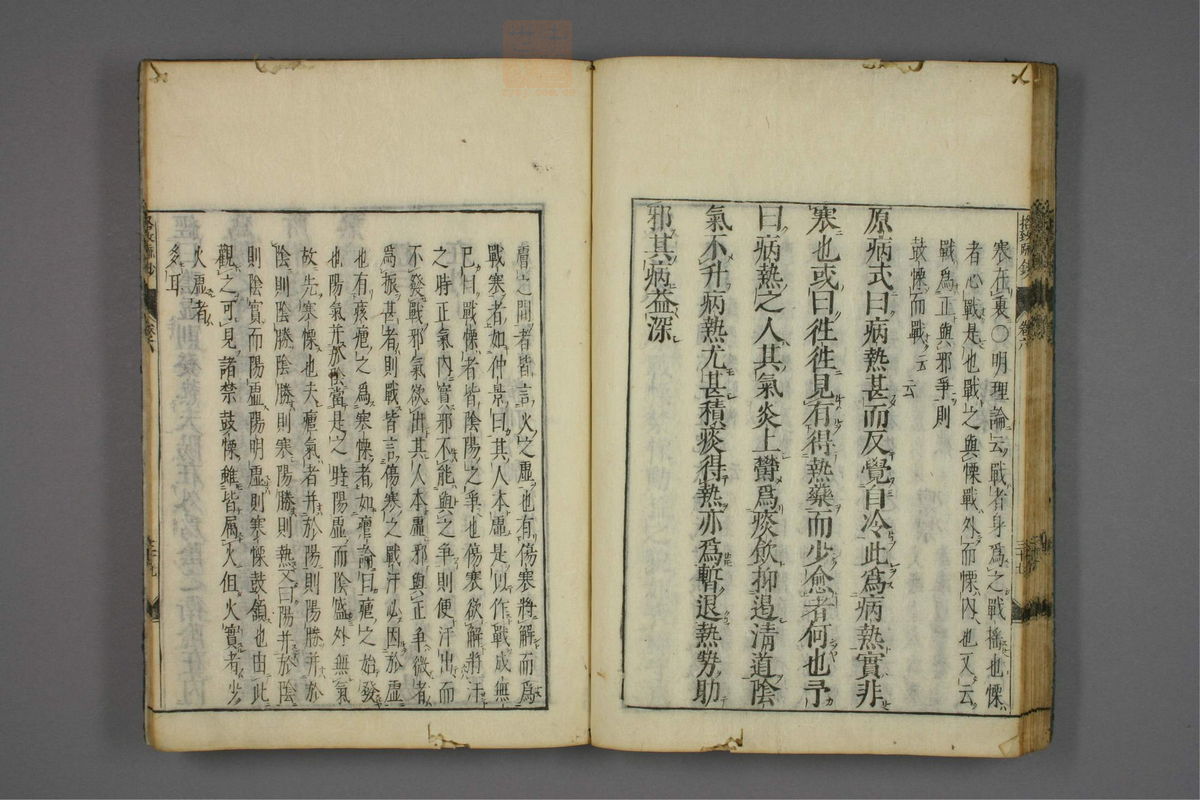 寒在裏〇明理論云戰者身爲之戰搖也慄
者心戰是也戰之與慄戰外而慄内也又云
戰爲正與邪爭則
鼓慄而戰云云
原病式曰病熱甚而反覺自冷此爲病熱實非
寒也或曰往往見有得熱藥而少愈者何也予
曰病熱之人其氣炎上鬱爲痰飲抑遏清道陰
氣不升病熱尤甚積痰得熱亦爲暫退熱勢助
邪其病益深
膚之間者皆言火之虛也有傷寒將解而爲
戰寒者如仲景曰其人本虛是以作戰成無
已曰戰慄者皆陰陽之爭也傷寒欲解將汗
之時正氣内實邪不能與之爭則便汗出而
不發戰邪氣欲出其人本虛邪與正爭微者
爲振甚者則戰皆言傷寒之戰汗必因於虛
也有痎瘧之爲寒慄者如瘧論曰瘧之始發
也陽氣并於陰當是之時陽虛而陰盛外無氣
故先寒慄也夫瘧氣者并於陽則陽勝并於
陰則陰勝陰勝則寒陽勝則熱又曰陽并於陰
則陰實而陽虛陽明虛則寒慄鼓頷也由此
觀之可見諸禁鼓慄雖皆屬火但火實者少
火虛者
多耳